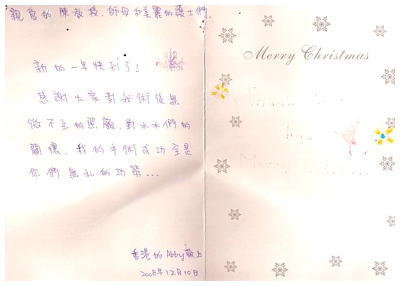 親愛的陳教授,師母和美麗的護士們
新的一年快到了!
感謝大家對我術後無
微不至的照顧、對水水們的
關懷、我的手術成功全是
你們無私的功勞...
香港的Abby敬上
2008年12月10日
Merry Christmas